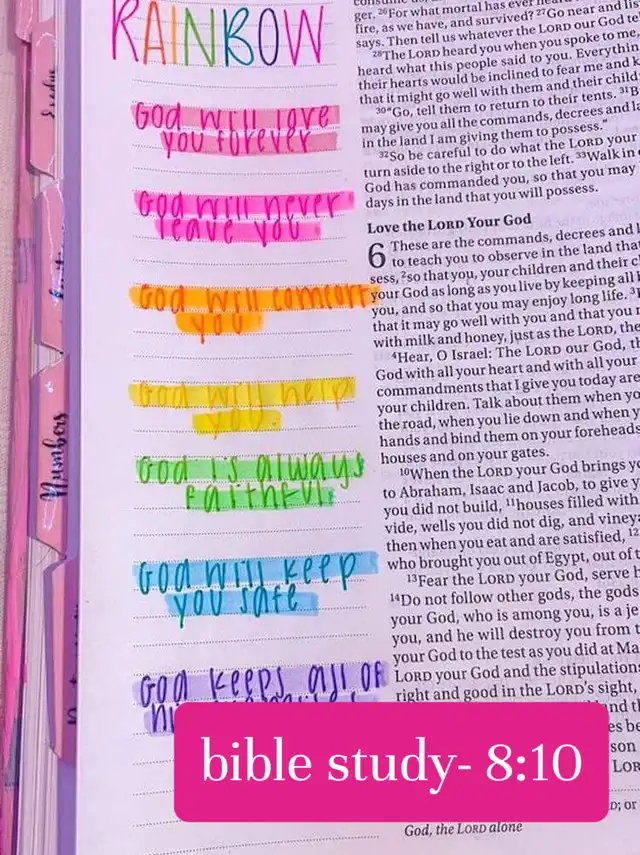 RAINBOW
God will love
you forever
God will never
leave you
God will comfort
you
God will help
you
God is always
faithful
God will keep
you safe
God keeps all of
Numbers
ger. 26For what mortal has ever heard
fire, as we have, and survived? 27Go near and lis
says. Then tell us whatever the LORD our God to
28The LORD heard you when you spoke to me,
heard what this people said to you. Everythin
their hearts would be inclined to fear me and k
that it might go well with them and their child
30"Go, tell them to return to their tents. 31B
may give you all the commands, decrees and l
in the land I am giving them to possess."
32So be careful to do what the LORD your
turn aside to the right or to the left. 33Walk in
God has commanded you, so that you may
days in the land that you will possess.
Love the LORD Your God
6 These are the commands, decrees and l
to teach you to observe in the land tha
sess, 2so that you, your children and their c
your God as long as you live by keeping all
you, and so that you may enjoy long life. 3
that it may go well with you and that you
with milk and honey, just as the LORD, the
4Hear, O Israel: The LORD our God, th
God with all your heart and with all your
commandments that I give you today are
your children. Talk about them when yo
the road, when you lie down and when y
hands and bind them on your foreheads
houses and on your gates.
10When the LORD your God brings yo
to Abraham, Isaac and Jacob, to give y
you did not build, 11houses filled with
vide, wells you did not dig, and viney
then when you eat and are satisfied, 12
who brought you out of Egypt, out of t
13Fear the LORD your God, serve h
14Do not follow other gods, the gods
your God, who is among you, is a je
you, and he will destroy you from t
your God to the test as you did at Ma
LORD your God and the stipulation
right and good in the LORD's sight,
and th
son
LOR
bible study- 8:10
D; or
God, the LORD alone